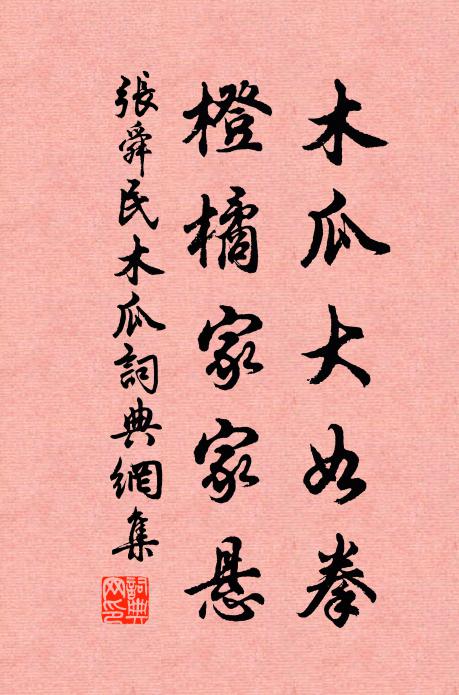 木瓜大如拳
橙橘家家悬
張舜民木瓜詞典網集
詞典網印